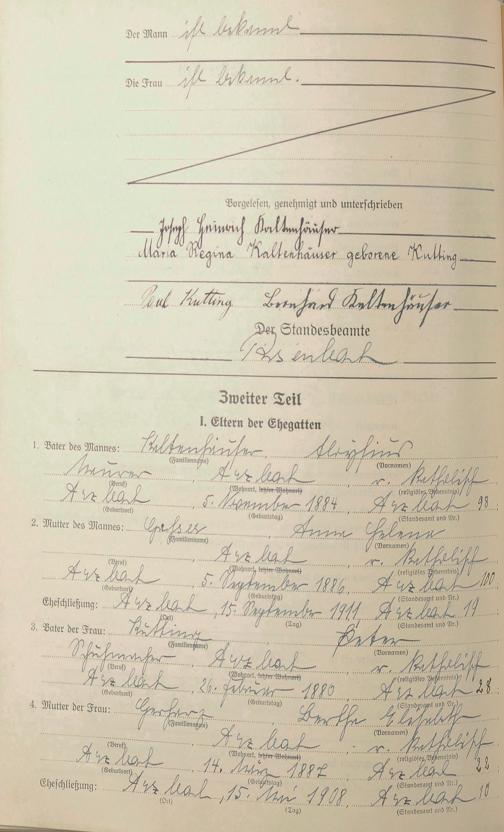 Der Mann ist bekannt.
Die Frau ist bekannt.
Vorgelesen, genehmigt und unterschrieben
Joseph Heinrich Kaltenhäuser
Maria Regina Kaltenhäuser geborene Kutting
Paul Kutting Bernhard Kaltenhäuser
Der Standesbeamte
Zweiter Teil
I. Eltern der Ehegatten
1. Vater des Mannes: Kaltenhäuser Aloysius
(Familienname) (Vornamen)
Maurer Arzbach r. katholisch
(Beruf) (Wohnort, letzter Wohnort) (religiöses Bekenntnis)
Arzbach 5. November 1884 Arzbach 98
(Geburtsort) (Geburtstag) (Standesamt und Nr.)
2. Mutter des Mannes: Anna Helena
(Familienname) (Vornamen)
Arzbach r. katholisch
(Beruf) (Wohnort, letzter Wohnort) (religiöses Bekenntnis)
Arzbach 5. September 1886 Arzbach 100
(Geburtsort) (Geburtstag) (Standesamt und Nr.)
Eheschließung: Arzbach, 15. September 1911 Arzbach 19
(Ort) (Tag) (Standesamt und Nr.)
3. Vater der Frau: Kutting Peter
(Familienname) (Vornamen)
Schuhmacher Arzbach r. katholisch
(Beruf) (Wohnort, letzter Wohnort) (religiöses Bekenntnis)
Arzbach 26. Februar 1880 Arzbach 28
(Geburtsort) (Geburtstag) (Standesamt und Nr.)
4. Mutter der Frau: Gerharz Bertha Elisabeth
(Familienname) (Vornamen)
Arzbach r. katholisch
(Beruf) (Wohnort, letzter Wohnort) (religiöses Bekenntnis)
Arzbach 14. März 1887 Arzbach 22
(Geburtsort) (Geburtstag) (Standesamt und Nr.)
Eheschließung: Arzbach, 15. Mai 1908, Arzbach 10
(Ort) (Tag) (Standesamt und Nr.)